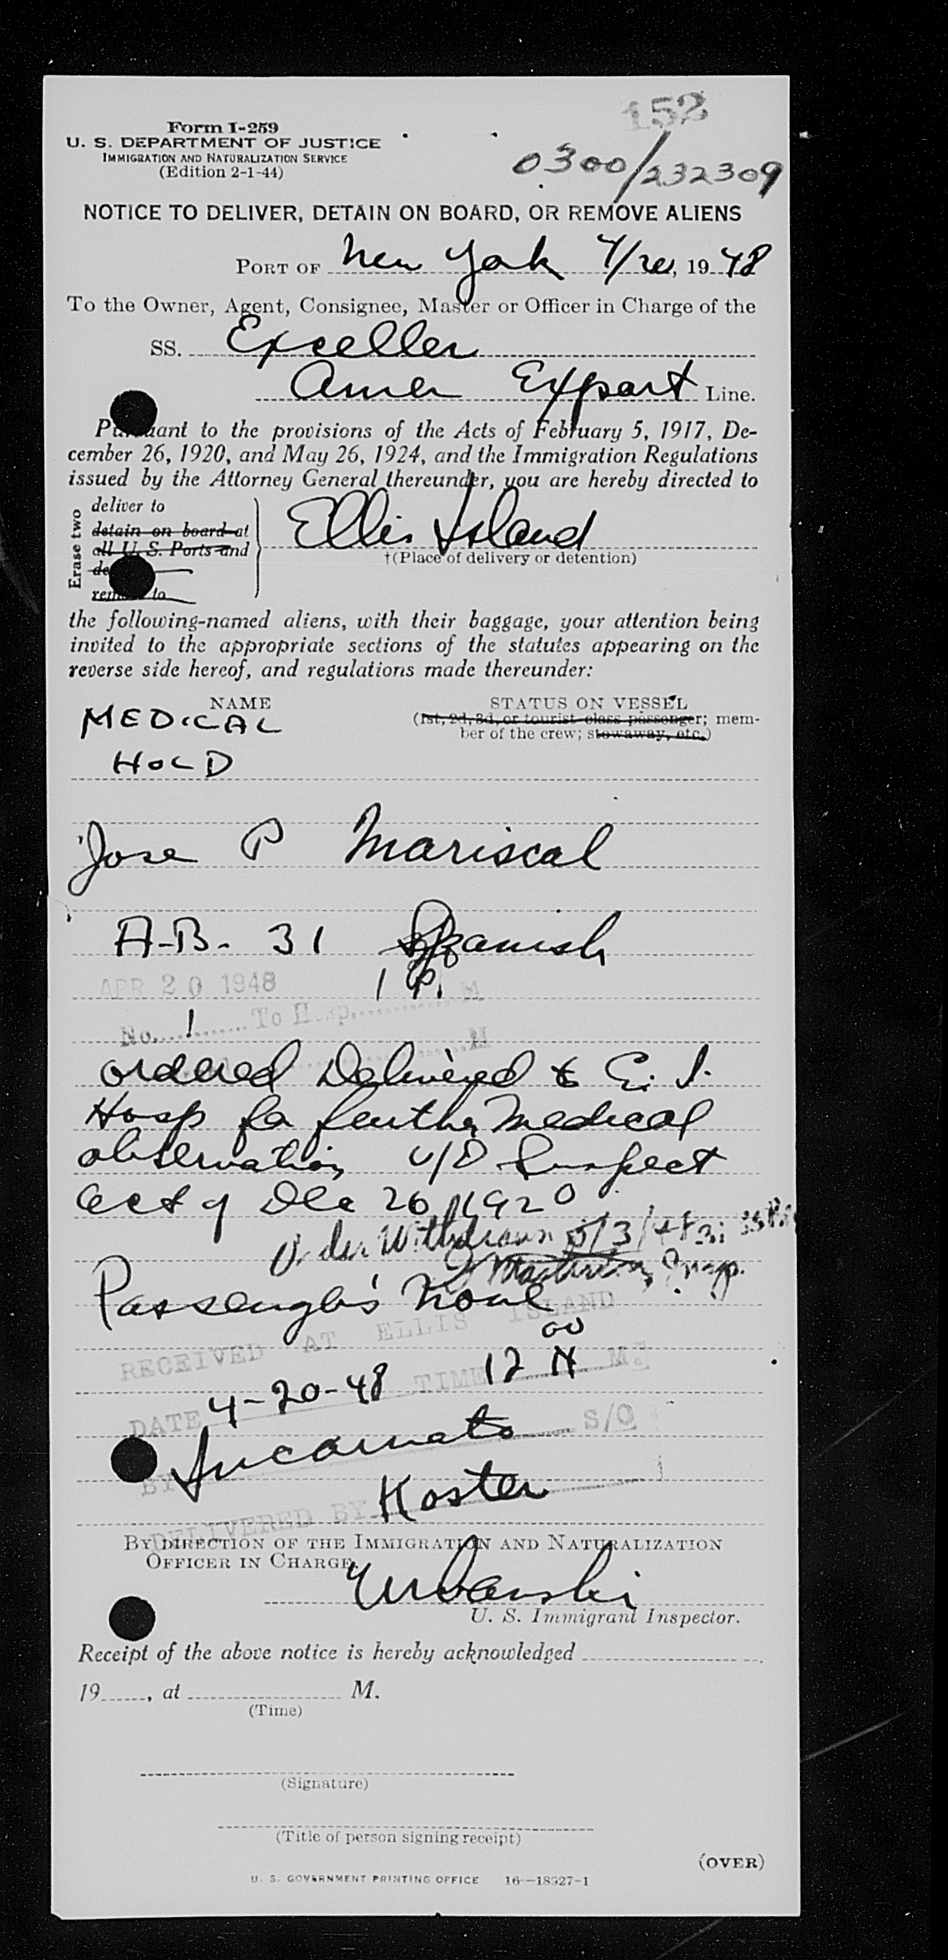 152
Form I-259
U. S. DEPARTMENT OF JUSTICE
IMMIGRATION AND NATURALIZATION SERVICE
(Edition 2-1-44)
0300/232309
NOTICE TO DELIVER, DETAIN ON BOARD, OR REMOVE ALIENS
PORT OF New York 4/20, 1948
To the Owner, Agent, Consignee, Master or Officer in Charge of the
SS. Exceller
Amer Export Line.
Pursuant to the provisions of the Acts of February 5, 1917, De-
cember 26, 1920, and May 26, 1924, and the Immigration Regulations
issued by the Attorney General thereunder, you are hereby directed to
Erase two
deliver to
detain on board at
all U. S. Ports and
Ellis Island
†(Place of delivery or detention)
remove to
the following-named aliens, with their baggage, your attention being
invited to the appropriate sections of the statutes appearing on the
reverse side hereof, and regulations made thereunder:
NAME STATUS ON VESSEL
MEDICAL (1st, 2d, 3d, or tourist class passenger; mem-
ber of the crew; stowaway, etc.)
HOLD
Jose P Mariscal
A-B- 31 Spanish
APR 20 1948 1 P.
No. 1 To Hosp. M
M
ordered Delivered to E. I.
Hosp for further medical
observation
Act of Dec 26, 1920
Order Withdrawn 5/3/48
Insp.
Passenger's None
RECEIVED AT ELLIS ISLAND
DATE 4-20-48 TIME 12 00 N M
BY Incarnato S/O
DELIVERED BY Koster
BY DIRECTION OF THE IMMIGRATION AND NATURALIZATION
OFFICER IN CHARGE.
Urbanski
U. S. Immigrant Inspector.
Receipt of the above notice is hereby acknowledged
19......, at M.
(Time)
(Signature)
(Title of person signing receipt)
(OVER)
U. S. GOVERNMENT PRINTING OFFICE 16—18327-1